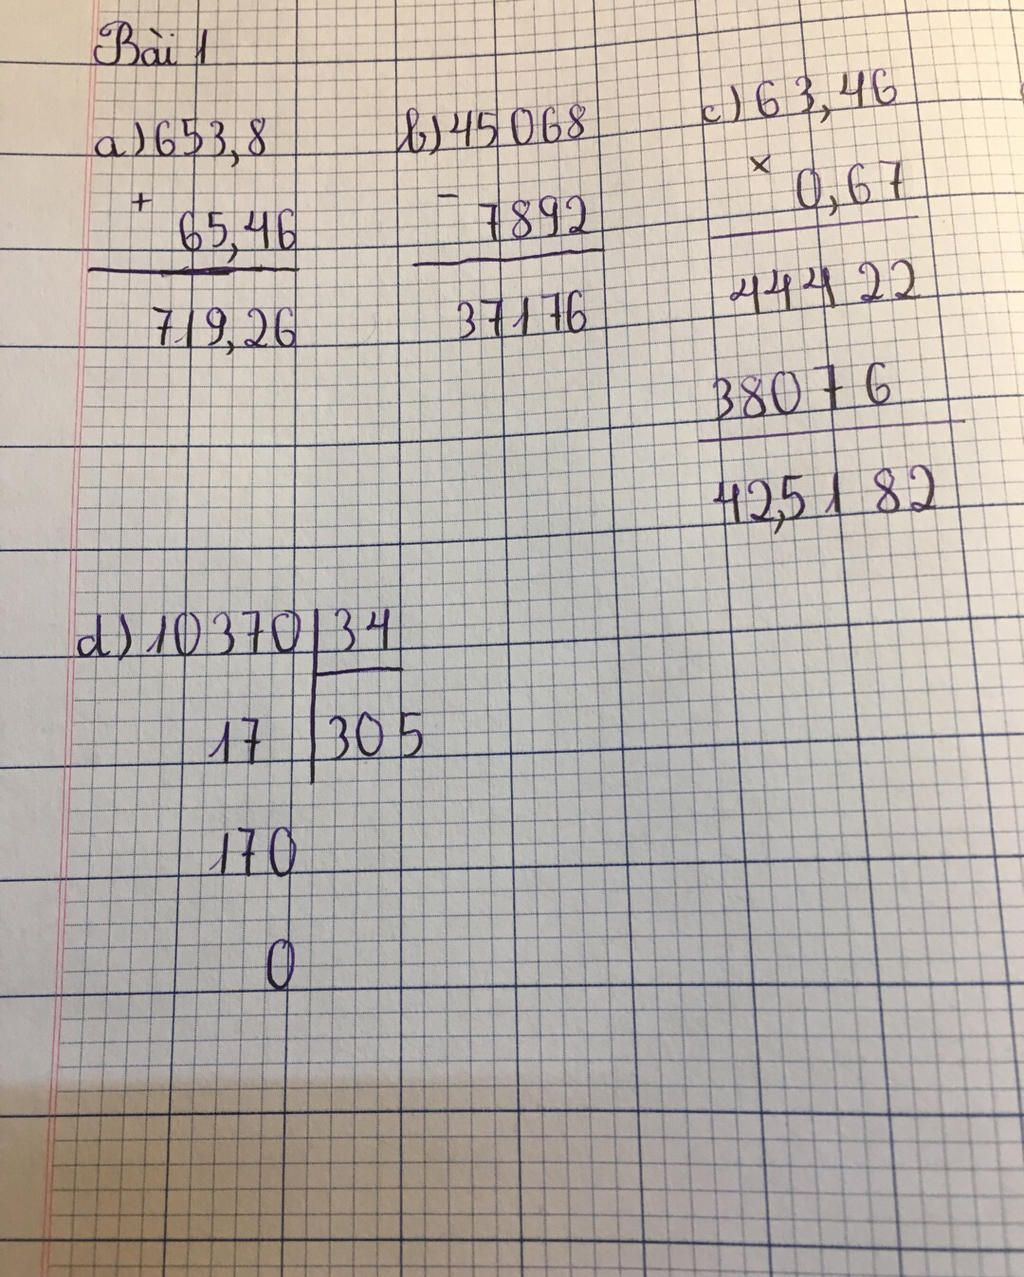 Bài 1
a) 653,8
+
65,46
719,26
b) 45068
-
7892
37176
c) 63,46
x
0,67
44422
38076
42,5182
d) 10370 34
17 305
170
0